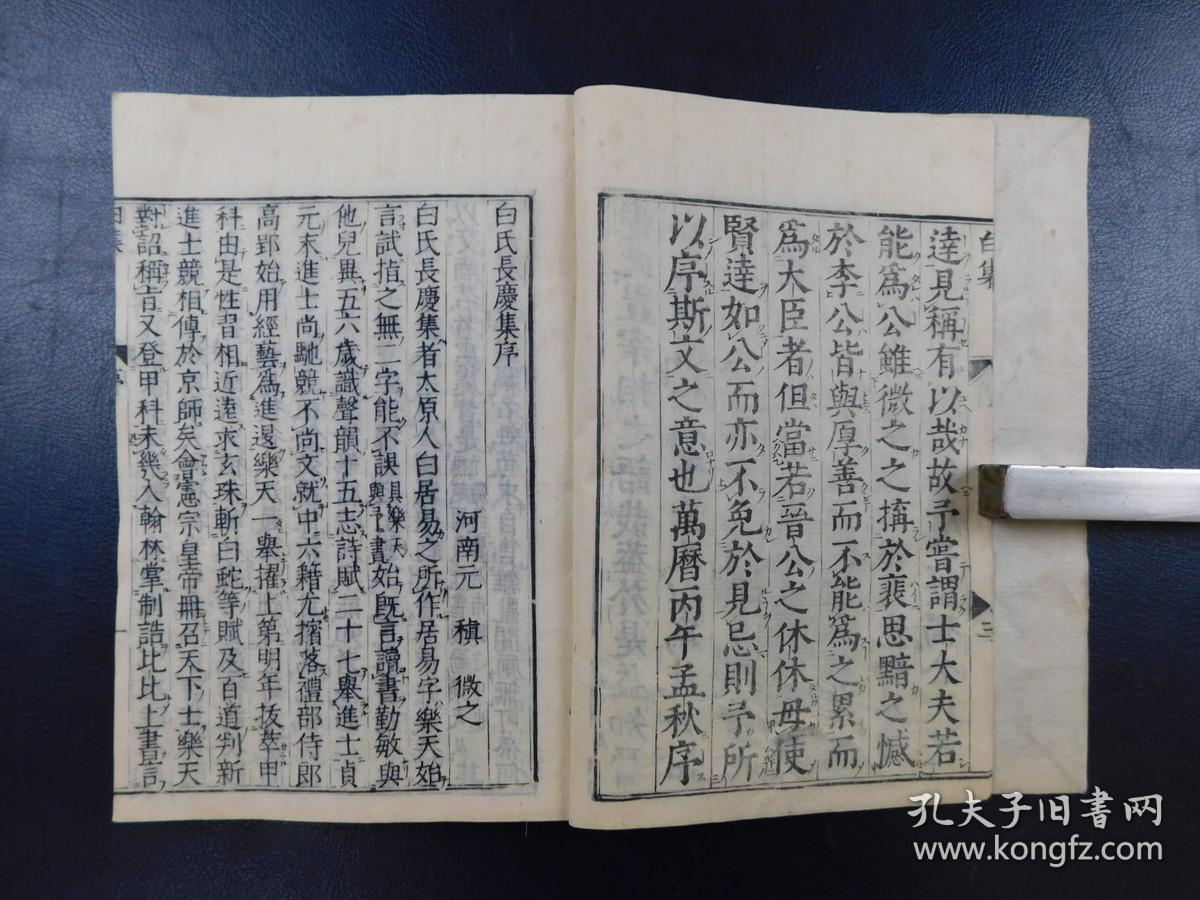 白集
三
達見稱有以哉故予嘗謂士大夫若
能爲公雖微之之搆於裴思黯之憾
於李公皆與厚善而不能爲之累而
爲大臣者但當若晉公之休休毋使
賢達如公而亦不免於見忌則予所
以序斯文之意也萬曆丙午孟秋序
白氏長慶集序
河南元稹微之
白氏長慶集者太原人白居易之所作居易字樂天始
言試指之無二字能不誤具樂天與予書始既言讀書勤敏與
他兒異五六歲識聲韻十五志詩賦二十七舉進士貞
元末進士尚馳競不尚文就中六籍尤擯落禮部侍郎
高郢始用經藝爲進退樂天一舉擢上第明年拔萃甲
科由是性習相近遠求玄珠斬白蛇等賦及百道判新
進士競相傳於京師矣會憲宗皇帝冊召天下士樂天
對詔稱旨又登甲科未幾入翰林掌制誥比比上書言
孔夫子旧书网
www.kongfz.com